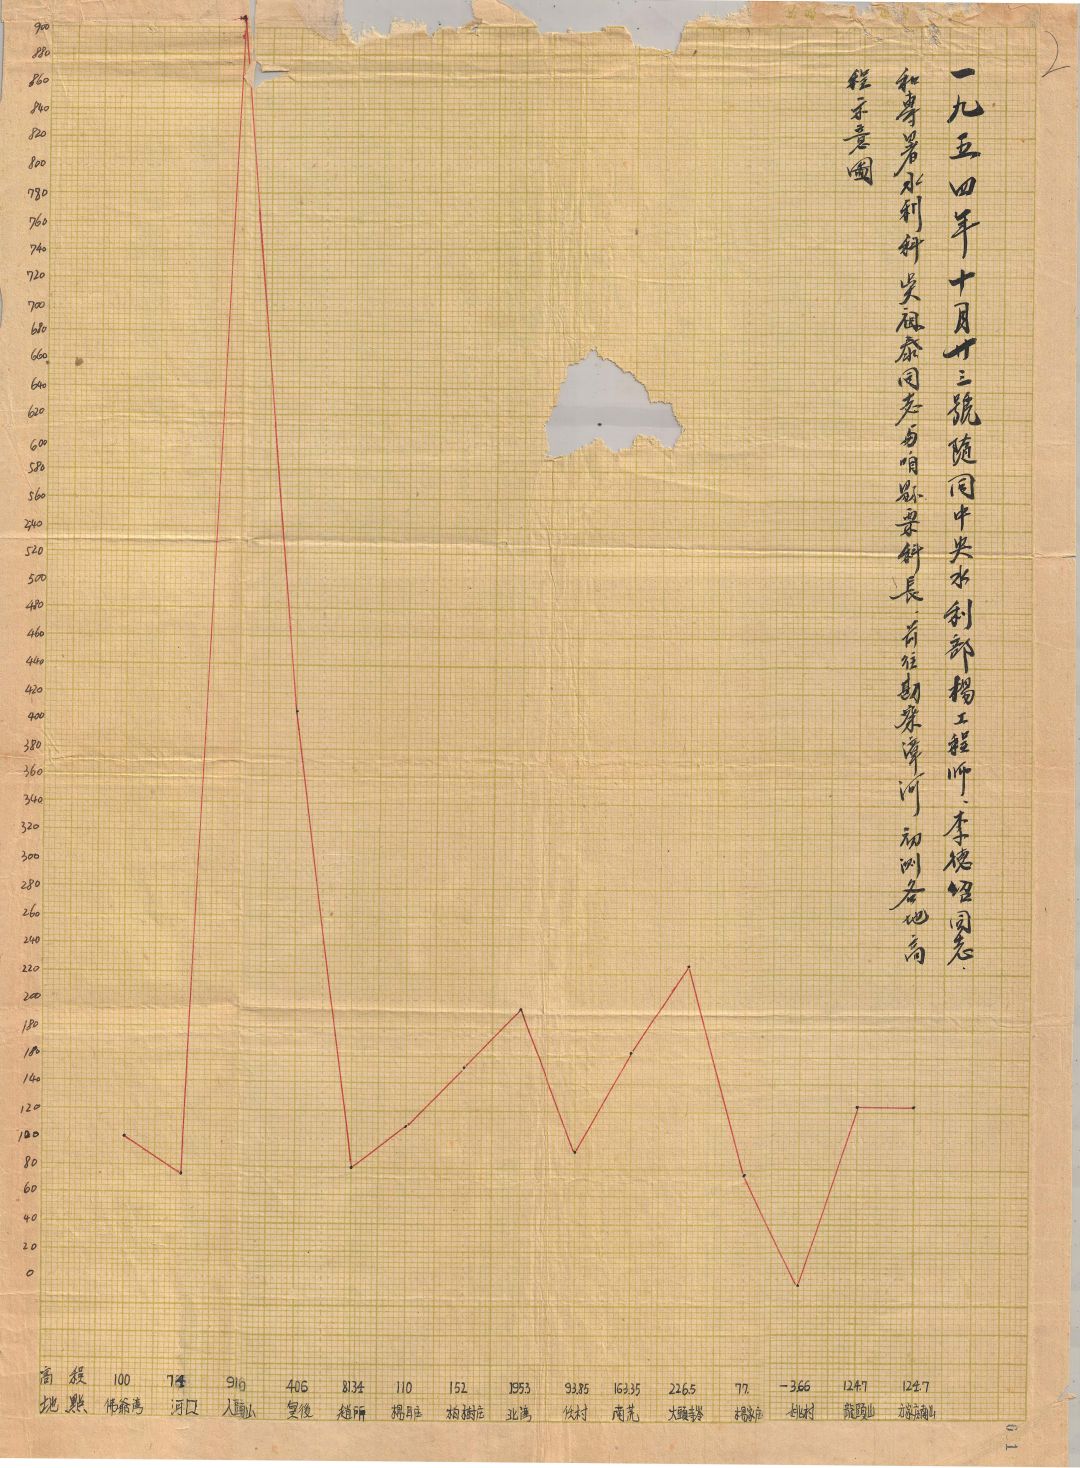 一九五四年十月廿三號隨同中央水利部楊工程师、李德 同志、
和專署水利科吳 泰同志与咱縣栗科長、前往勘察漳河初测各地高
程示意圖
2
900
880
860
840
820
800
780
760
740
720
700
680
660
640
620
600
580
560
540
520
500
480
460
440
420
400
380
360
340
320
300
280
260
240
220
200
180
180
140
120
100
80
60
40
20
0
高程 100 74 916 406 8134 110 152 1953 93.85 163.35 226.5 77. -3.66 124.7 124.7
地點 佛爺湾 河口 人頭山 皇後 趙所 楊耳庄 柏树庄 北湾 伙村 南荒 楊家庄 姚村 龍頭山
61